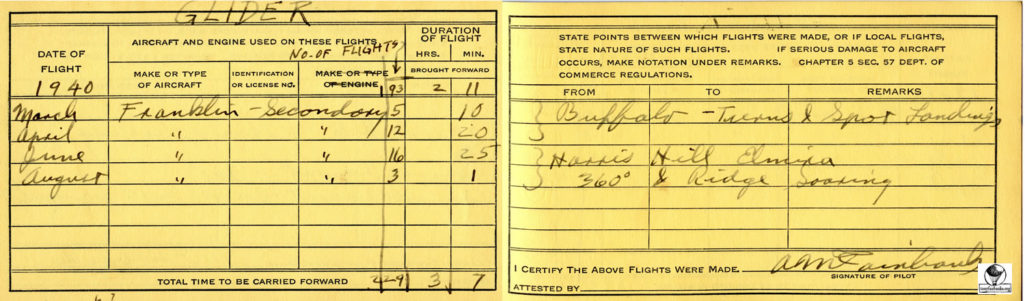 GLIDER
DATE OF FLIGHT
1940
AIRCRAFT AND ENGINE USED ON THESE FLIGHTS
NO. OF FLIGHTS
DURATION OF FLIGHT
HRS. MIN.
MAKE OR TYPE OF AIRCRAFT
IDENTIFICATION OR LICENSE NO.
MAKE OR TYPE OF ENGINE
BROUGHT FORWARD
193 2 11
March Franklin - Secondary 5 10
April " " 12 20
June " " 16 25
August " " 3 1
TOTAL TIME TO BE CARRIED FORWARD 229 3 7
STATE POINTS BETWEEN WHICH FLIGHTS WERE MADE, OR IF LOCAL FLIGHTS,
STATE NATURE OF SUCH FLIGHTS. IF SERIOUS DAMAGE TO AIRCRAFT
OCCURS, MAKE NOTATION UNDER REMARKS. CHAPTER 5 SEC. 57 DEPT. OF
COMMERCE REGULATIONS.
FROM TO REMARKS
Buffalo - Turns & Spot Landings
Harris Hill Elmira
360° & Ridge Soaring
I CERTIFY THE ABOVE FLIGHTS WERE MADE.
SIGNATURE OF PILOT
ATTESTED BY